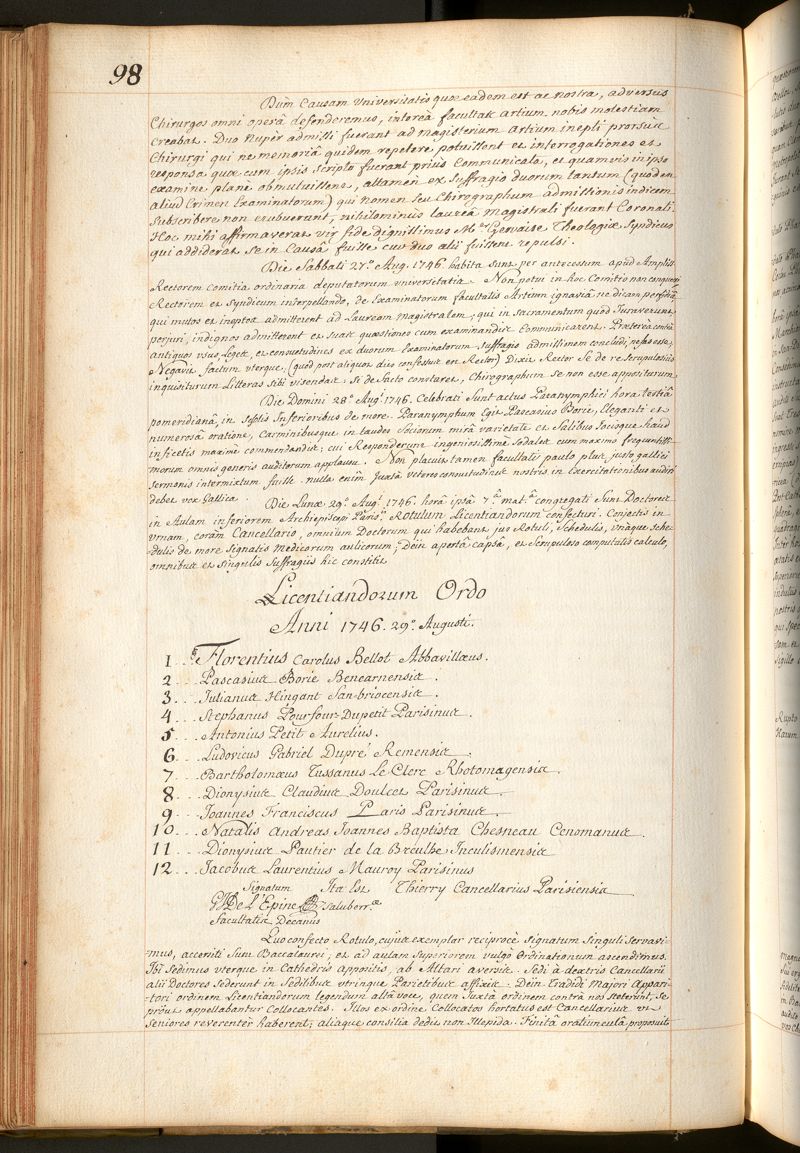 98
Dum Causam Universitatis quæ eadem est ac nostra, adversus
Chirurgos omni operâ defenderemus, intereà facultas artium nobis molestiam
Creabat. Duo nuper admissi fuerant ad magisterium artium inepti prorsus
Chirurgi qui ne memoriâ quidem repetere potuissent et interrogationes et
responsa quæ cum ipsis scripto fuerant prius Communicata, et quamvis in ipso
examine planè obmutuissent, attamen ex suffragio duorum tantum (quod en
aliud Crimen Examinatorum) qui nomen seu Chirographum admissionis indicem
Subscribere non erubuerunt, nihilominus laureâ magistrali fuerant Coronati.
Hoc mihi affirmaverat vir fide dignissimus Mer Gervaise Theologiæ Syndicus
qui addiderat se in Causâ fuisse cur duo alii fuissent repulsi.
Die Sabbati 27.º Aug. 1746. habita sunt per antecessum apud Ampliss.
Rectorem Comitia ordinaria deputatorum universitatis. Non potui in hoc Comitio non conqueri
Rectorem et Syndicum interpellando, de Examinatorum facultatis Artium ignaviâ ne dicam perfidiâ
qui mutos et ineptos admitterent ad Lauream magistralem; qui in Sacramentum quod Juraverunt
perjuri, indignos admitterent et suas quæstiones cum examinandis Communicarent. Præterea contrà
antiquos usus, Leges, et consuetudines ex duorum Examinatorum suffragio admissionem concludi, nefas esse.
Negavit factum uterque, (quod post aliquot dies confessus est Rector) Dixit Rector se de re scrupulosiùs
inquisiturum Litteras sibi visendas. Si de facto constaret, Chirographum se non esse appositurum.
Die Domini 28.º Augti 1746. Celebrati sunt actus Paranymphici horâ tertiâ
pomeridianâ, in scholis Inferioribus de more. Paranymphum Egit Pascasius Borie, Eleganti et
numerosâ oratione, Carminibusque in laudes Sociorum mirâ varietate et Salibus Jocisque haud
infectis maximè commendandis; cui Responderunt ingeniosissimè Sodales cum maximo frequentissi-
morum omnis generis auditorum applausu. Non placuit tamen facultati paulo plus justo gallici
Sermonis intermixtum fuisse. nulla enim Juxtà veteres consuetudines nostris in Exercitationibus audiri
debet vox Gallica. Die Lunæ 29.º Augti 1746. horâ ipsâ 7.â mat.â congregati sunt Doctores
in Aulam inferiorem Archiepiscopi Parisis Rotulum Licentiandorum confecturi. Conjectis in
urnam, coram Cancellario, omnium Doctorum qui habebant jus Rotuli, Schedulis, unâque sche-
dulis de more signatis medicorum aulicorum; Dein apertâ capsâ, et scrupuloso computatis calculo,
omnibus et singulis suffragiis hic constitit
Licentiandorum Ordo
Anni 1746. 29.º Augusti.
1 . . . Florentius Carolus Bellot Abbavillæus.
2 . . . Pascasius Borie Benearnensis.
3 . . . Julianus Hingant San-briocensis.
4 . . . Stephanus Pourfour Dupetit Parisinus.
5 . . . Antonius Petit Aurelius.
6 . . . Ludovicus Gabriel Dupré Remensis.
7 . . . Bartholomæus Tussanus Le Clerc Rhotomagensis.
8 . . . Dionysius Claudius Doulcet Parisinus.
9 . . . Joannes Franciscus Paris Parisinus.
10 . . . Natalis Andreas Joannes Baptista Chesneau Cenomanus.
11 . . . Dionysius Pautier de la Breulhe Inculismensis
12 . . . Jacobus Laurentius Mauroy Parisinus
Signatum Ita Est Thierry Cancellarius Parisiensis
De l'Epine Saluberr.æ
Facultatis Decanus
Quo confecto Rotulo, cujus exemplar reciprocè signatum singuli servavi-
mus, acersiti sunt Baccalaurei, et ad aulam superiorem vulgo Ordinationum ascendimus.
Ibi sedimus uterque in Cathedris appositis, ab Altari aversis. Sedi à dextris Cancellarii
alii Doctores sederunt in sedilibus utrinque Parietibus affixis. Dein tradidi Majori Appari-
tori ordinem Licentiandorum legendum altâ voce, quem Juxtà ordinem contrà nos steterunt, se
prout appellabantur Collocantes. Illos ex ordine Collocatos hortatus est Cancellarius ut
seniores reverenter haberent; aliaque consilia dedit non Illepida. Finitâ oratiunculâ proposuit